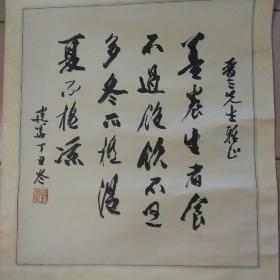 先生雅正
善養生者食
不過飽飲不過
多冬不極溫
夏不極凉
丁丑冬